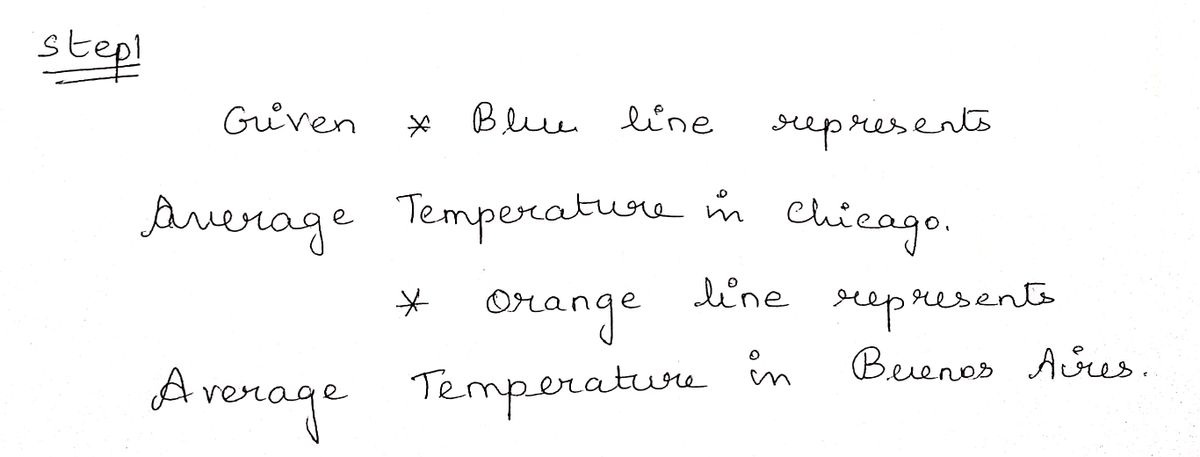 Step1
Given * Blue line represents
Average Temperature in Chicago.
* Orange line represents
Average Temperature in Buenos Aires.